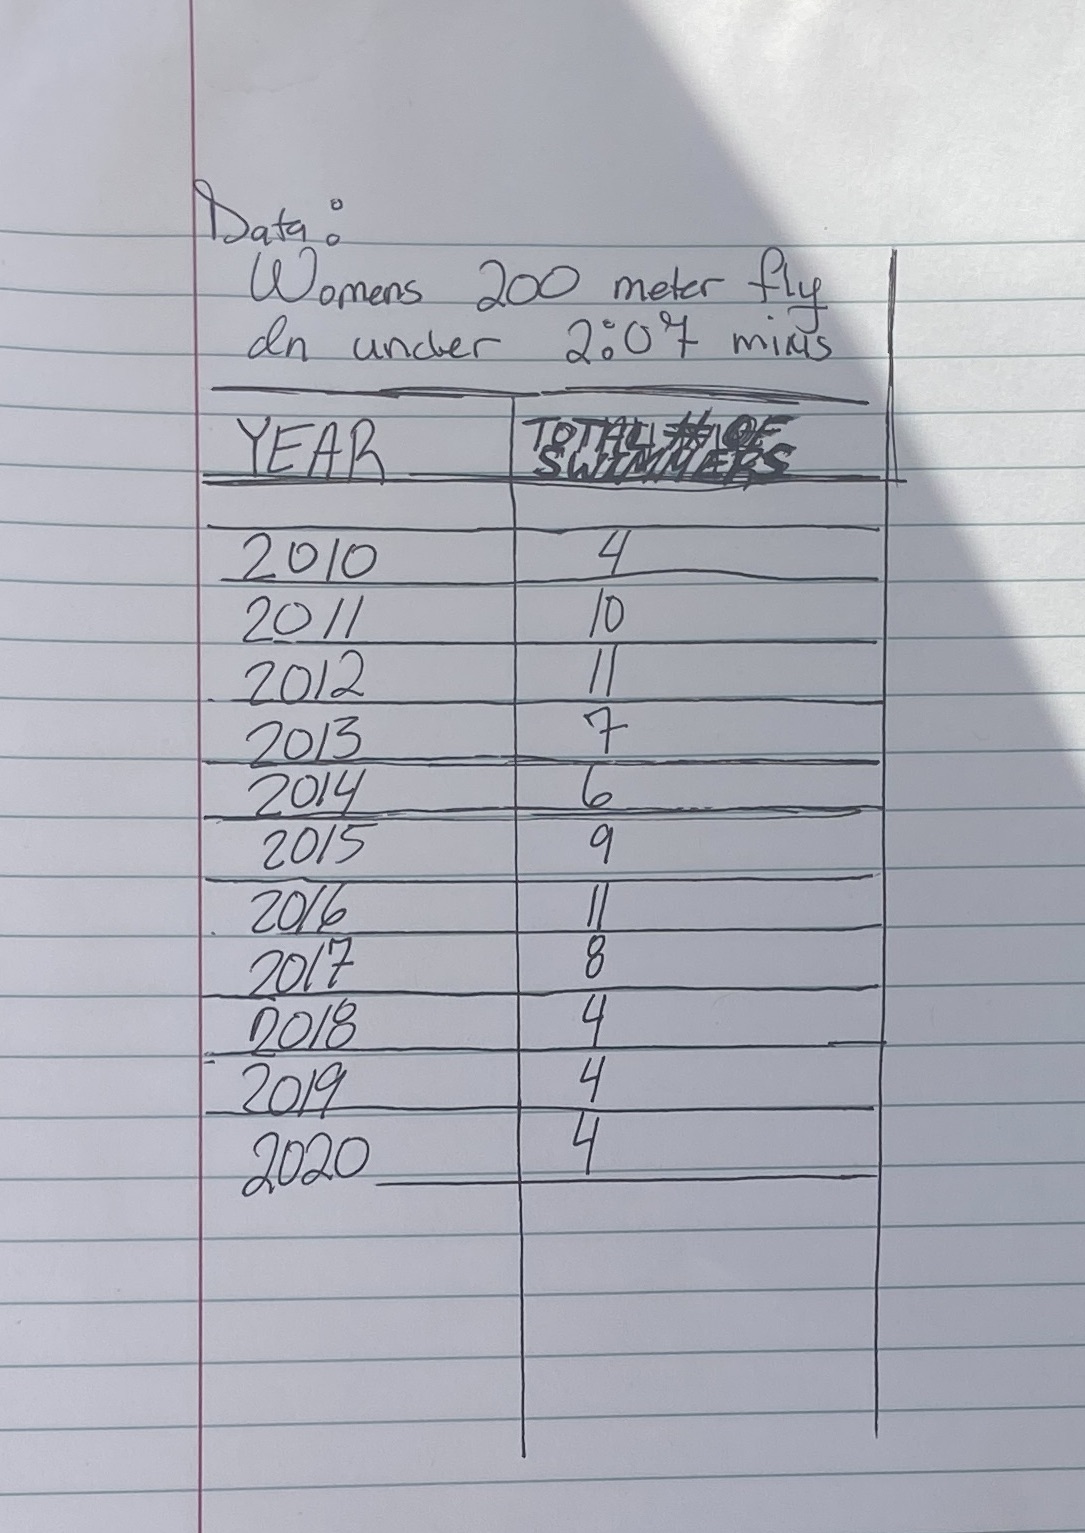 Data:
Womens 200 meter fly
In under 2:07 mins
YEAR TOTAL # OF
SWIMMERS
2010 4
2011 10
2012 11
2013 7
2014 6
2015 9
2016 11
2017 8
2018 4
2019 4
2020 4